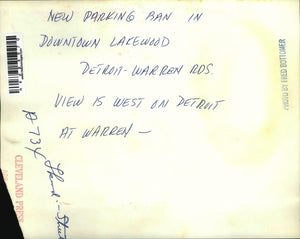 NEW PARKING BAN IN
DOWNTOWN LAKEWOOD
DETROIT-WARREN RDS.
VIEW IS WEST ON DETROIT
AT WARREN —
PHOTO BY FRED BOTTOMER
CLEVELAND PRESS